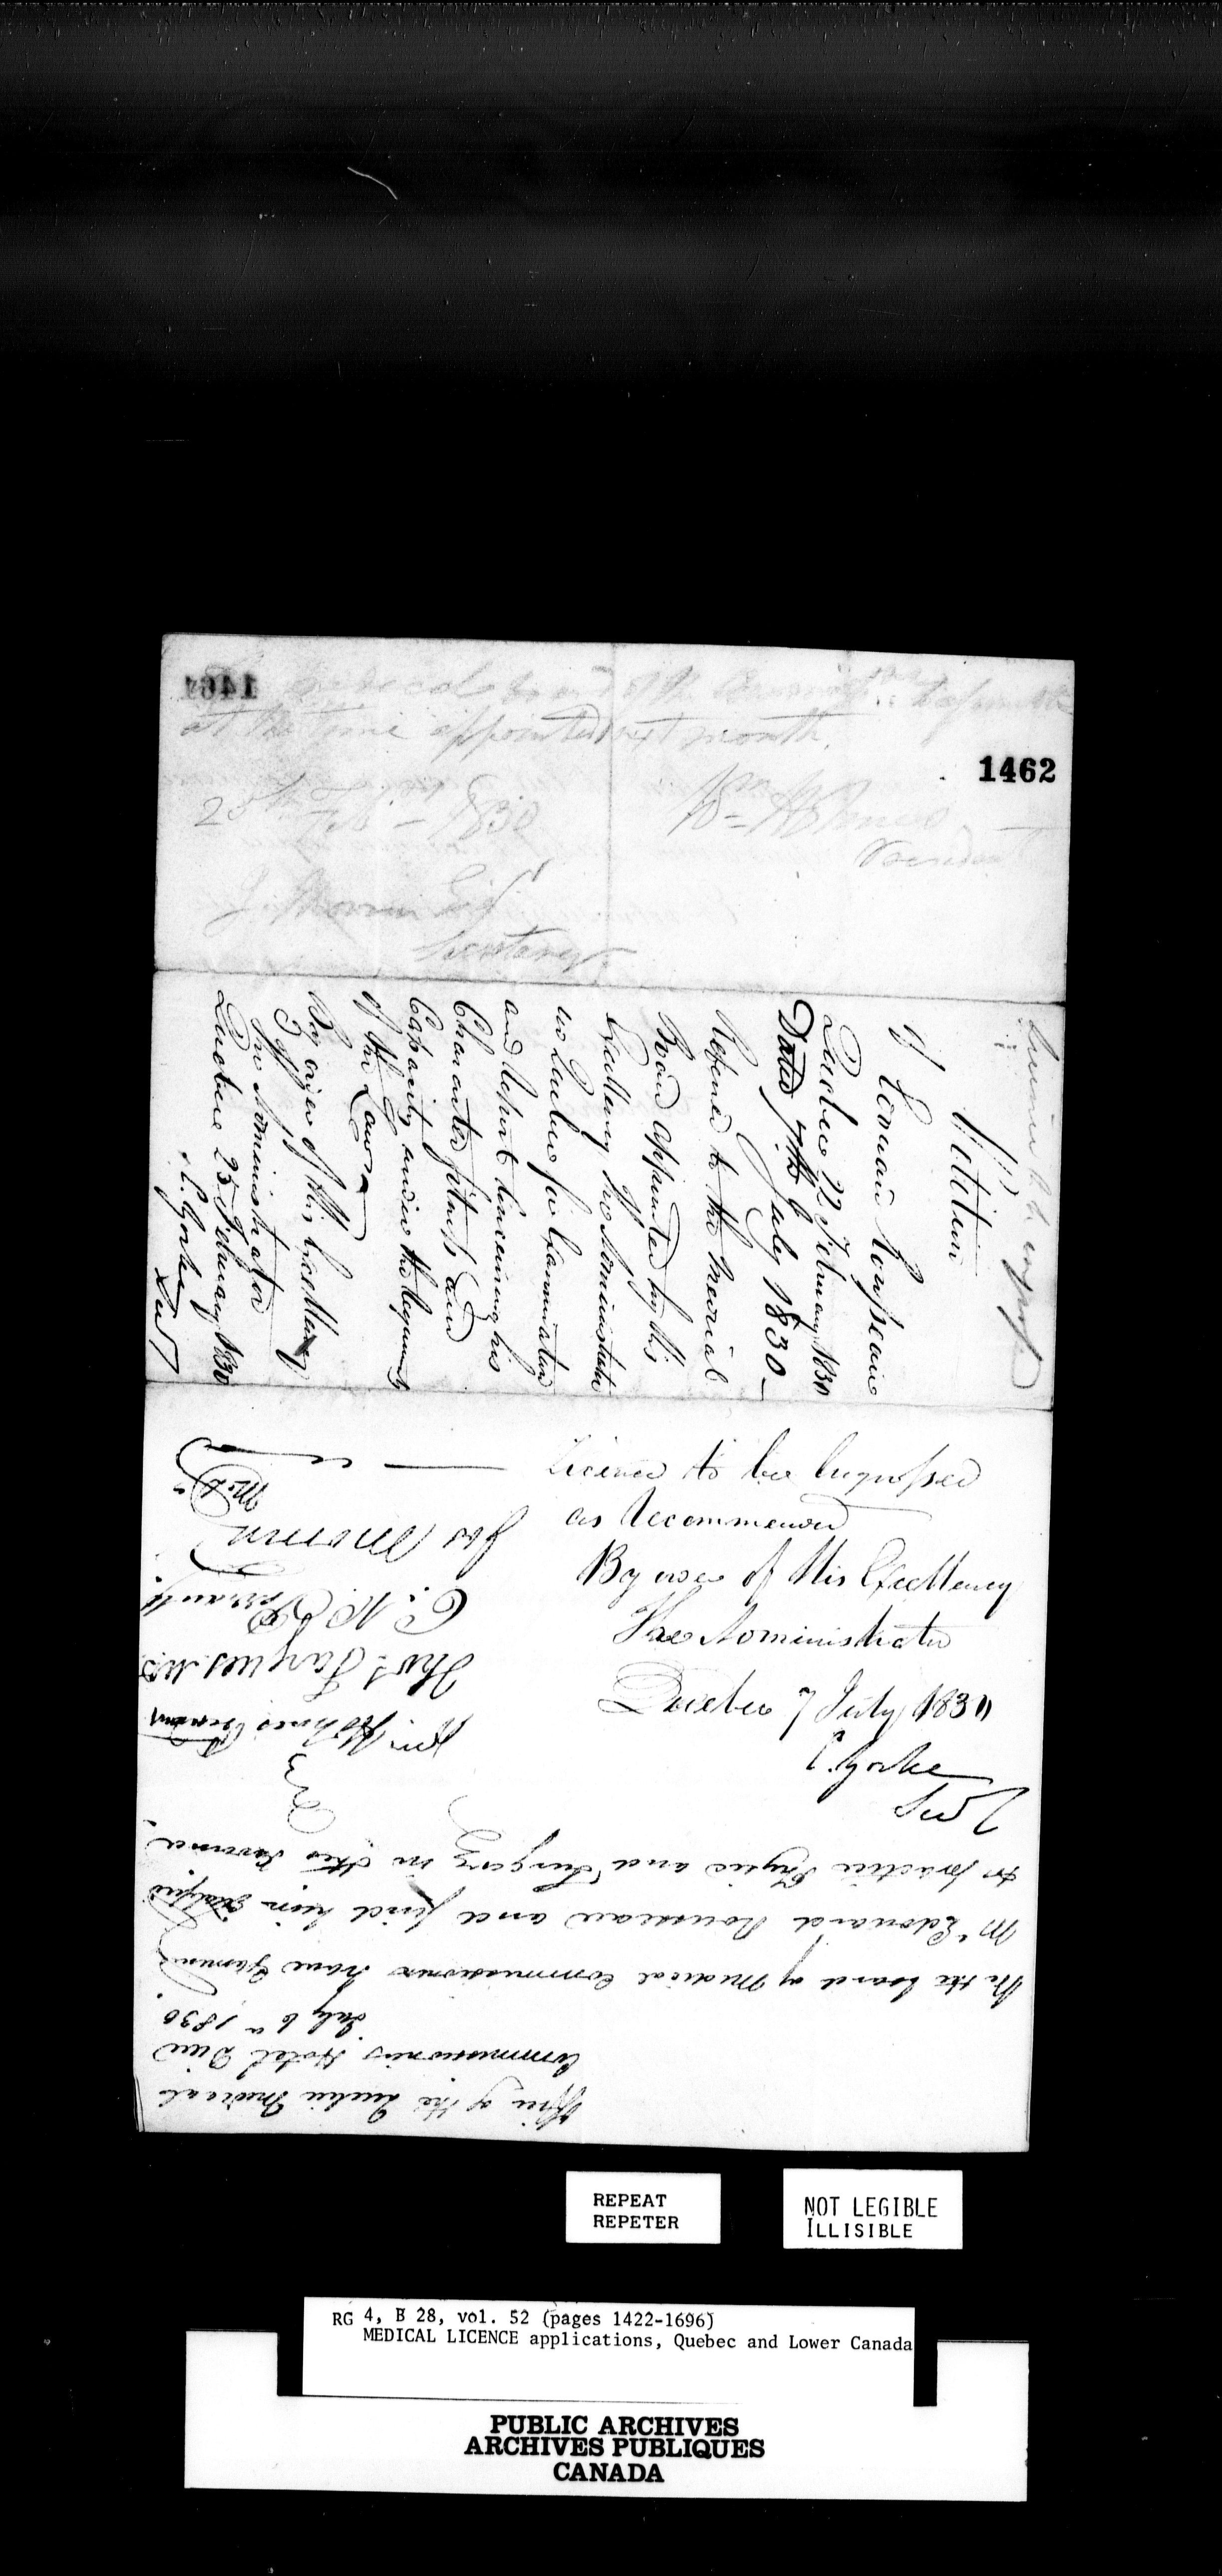 1462
at the time appointed next month.
25th Feb. – 1830
Wm Holmes
President
J. Morrin Esq
Secretary
Licence to be engrossed
Petition
of Edouard Rousseau
Quebec 22 February 1830
Dated 7th July 1830 –
Referred to the Medical
Board appointed by His
Excellency the Administrator
for Quebec for Examination
and Report concerning his
Character fitness and
Capacity under the requirements
of the Law
By order of His Excellency
The Administrator
Quebec 23 February 1830
C. Yorke
Secy
Licence to be Engrossed
as Recommended
By order of His Excellency
The Administrator
Quebec 7 July 1830
C. Yorke
Secy
Office of the Quebec Medical
Commissioners Hotel Dieu
July 6th 1830
We the board of Medical Commissioners have Examined
Mr Edouard Rousseau and find him qualified
to practice Physic and Surgery in this Province.
Wm Holmes President
Thos Fargues M.D
C. N. Perrault
Jos Morrin
REPEAT
REPETER
NOT LEGIBLE
ILLISIBLE
RG 4, B 28, vol. 52 (pages 1422-1696)
MEDICAL LICENCE applications, Quebec and Lower Canada
PUBLIC ARCHIVES
ARCHIVES PUBLIQUES
CANADA